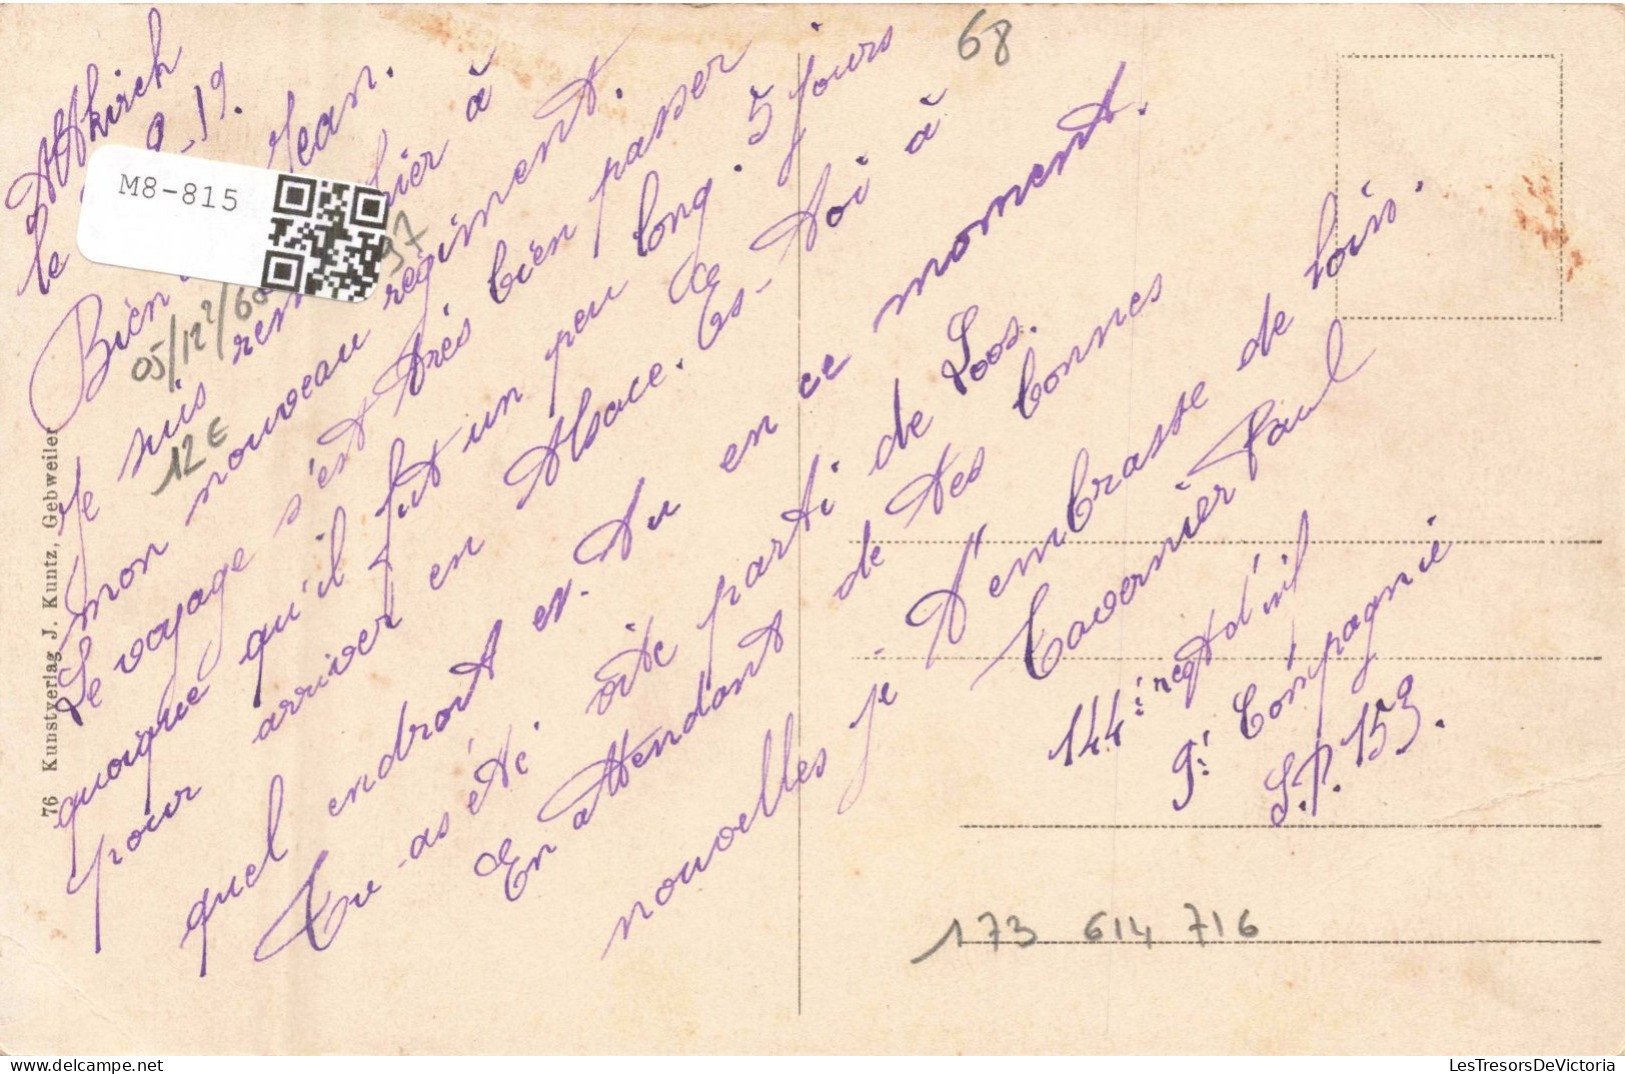 Altkirch
le 9-19.
Bien Jean.
Je suis hier à
mon nouveau régiment.
Le voyage s'est très bien passer
quoique qu'il fut un peu long. 5 jours
pour arriver en Alsace. Es-toi à
quel endroit es-tu en ce moment.
Tu as été. vite parti de Loos.
En attendant de tes bonnes
nouvelles je t'embrasse de loin.
Tavernier Paul
144è regt d'inf
9è Compagnie
S.P. 153.
76 Kunstverlag J. Kuntz, Gebweiler
M8-815
97
05/122/60
12€
68
173 614 716
LesTresorsDeVictoria
LesTresorsDeVictoria.com